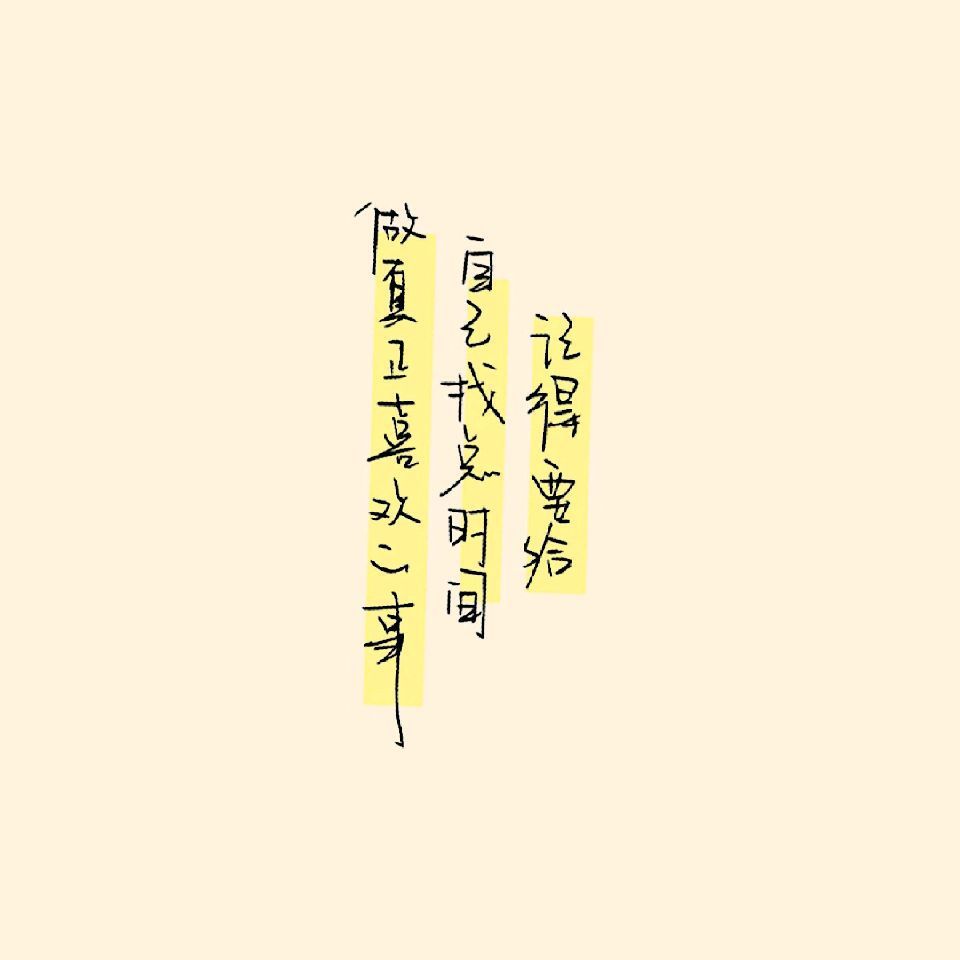 记得要给
自己找点时间
做真正喜欢的事